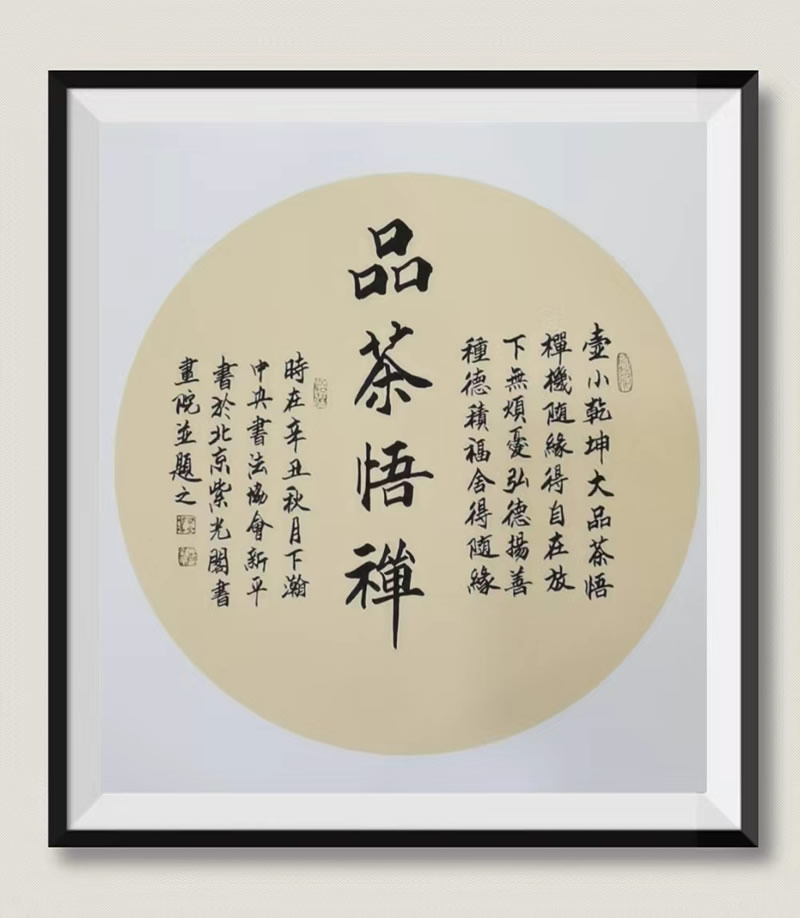 壺小乾坤大品茶悟
禪機隨緣得自在放
下無煩憂弘德揚善
種德積福舍得隨緣
品茶悟禪
時在辛丑秋月下瀚
中央書法協會新平
書於北京紫光閣書
畫院並題之